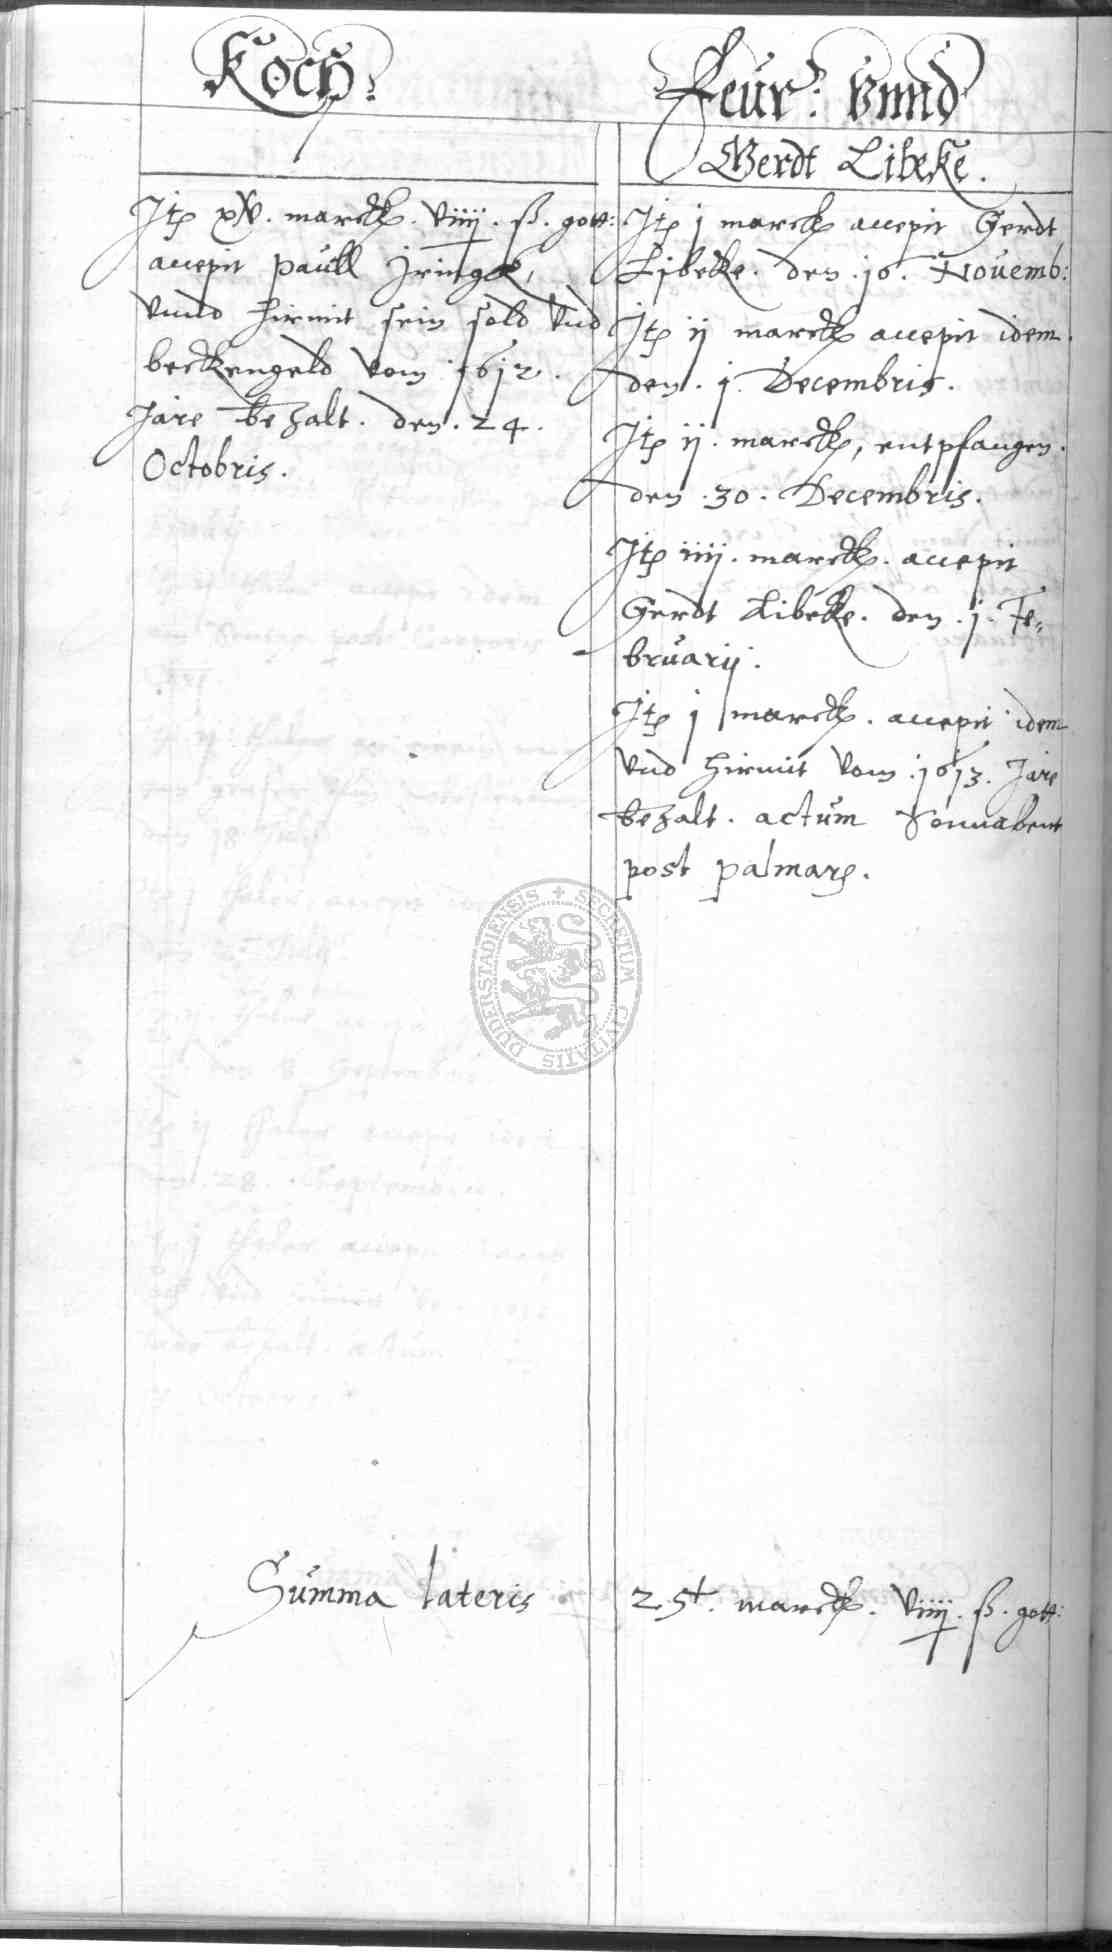 Koch.
Jtem xv. marck. viiij. ß. gott:
accepit Paull Jringk,
vnnd hirmit sein sold vnd
beckengeld vom 1612.
Jare bezalt. den. 24.
Octobris.
Feur: vnnd
Gerdt Libeke.
Jtem j marck accepit Gerdt
Libeke. den. 16. Nouemb:
Jtem ij marck accepit idem.
den. j. Decembris.
Jtem ij. marck, entpfangen.
den. 30. Decembris.
Jtem iiij. marck. accepit
Gerdt Libeke. den. j. Fe,,
bruarij.
Jtem j marck. accepit idem
vnd hirmit vom. 1613. Jare
bezalt. actum Sonnabent
post palmarum.
SECRETUM CIVITATIS DUDERSTADIENSIS
Summa lateris 25. marck. viiij. ß. gott: